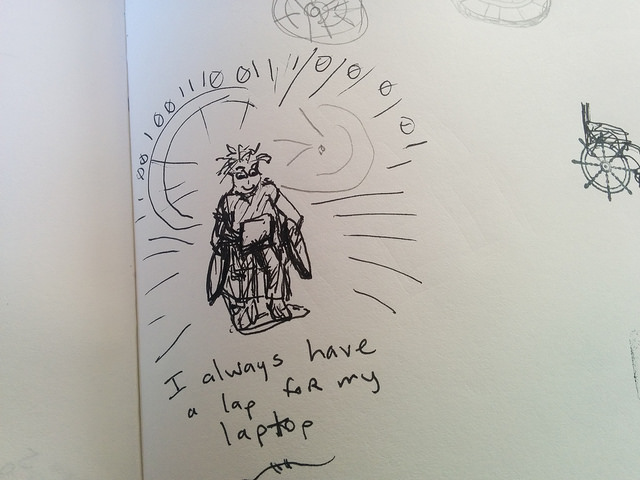 I always have
a lap for my
laptop